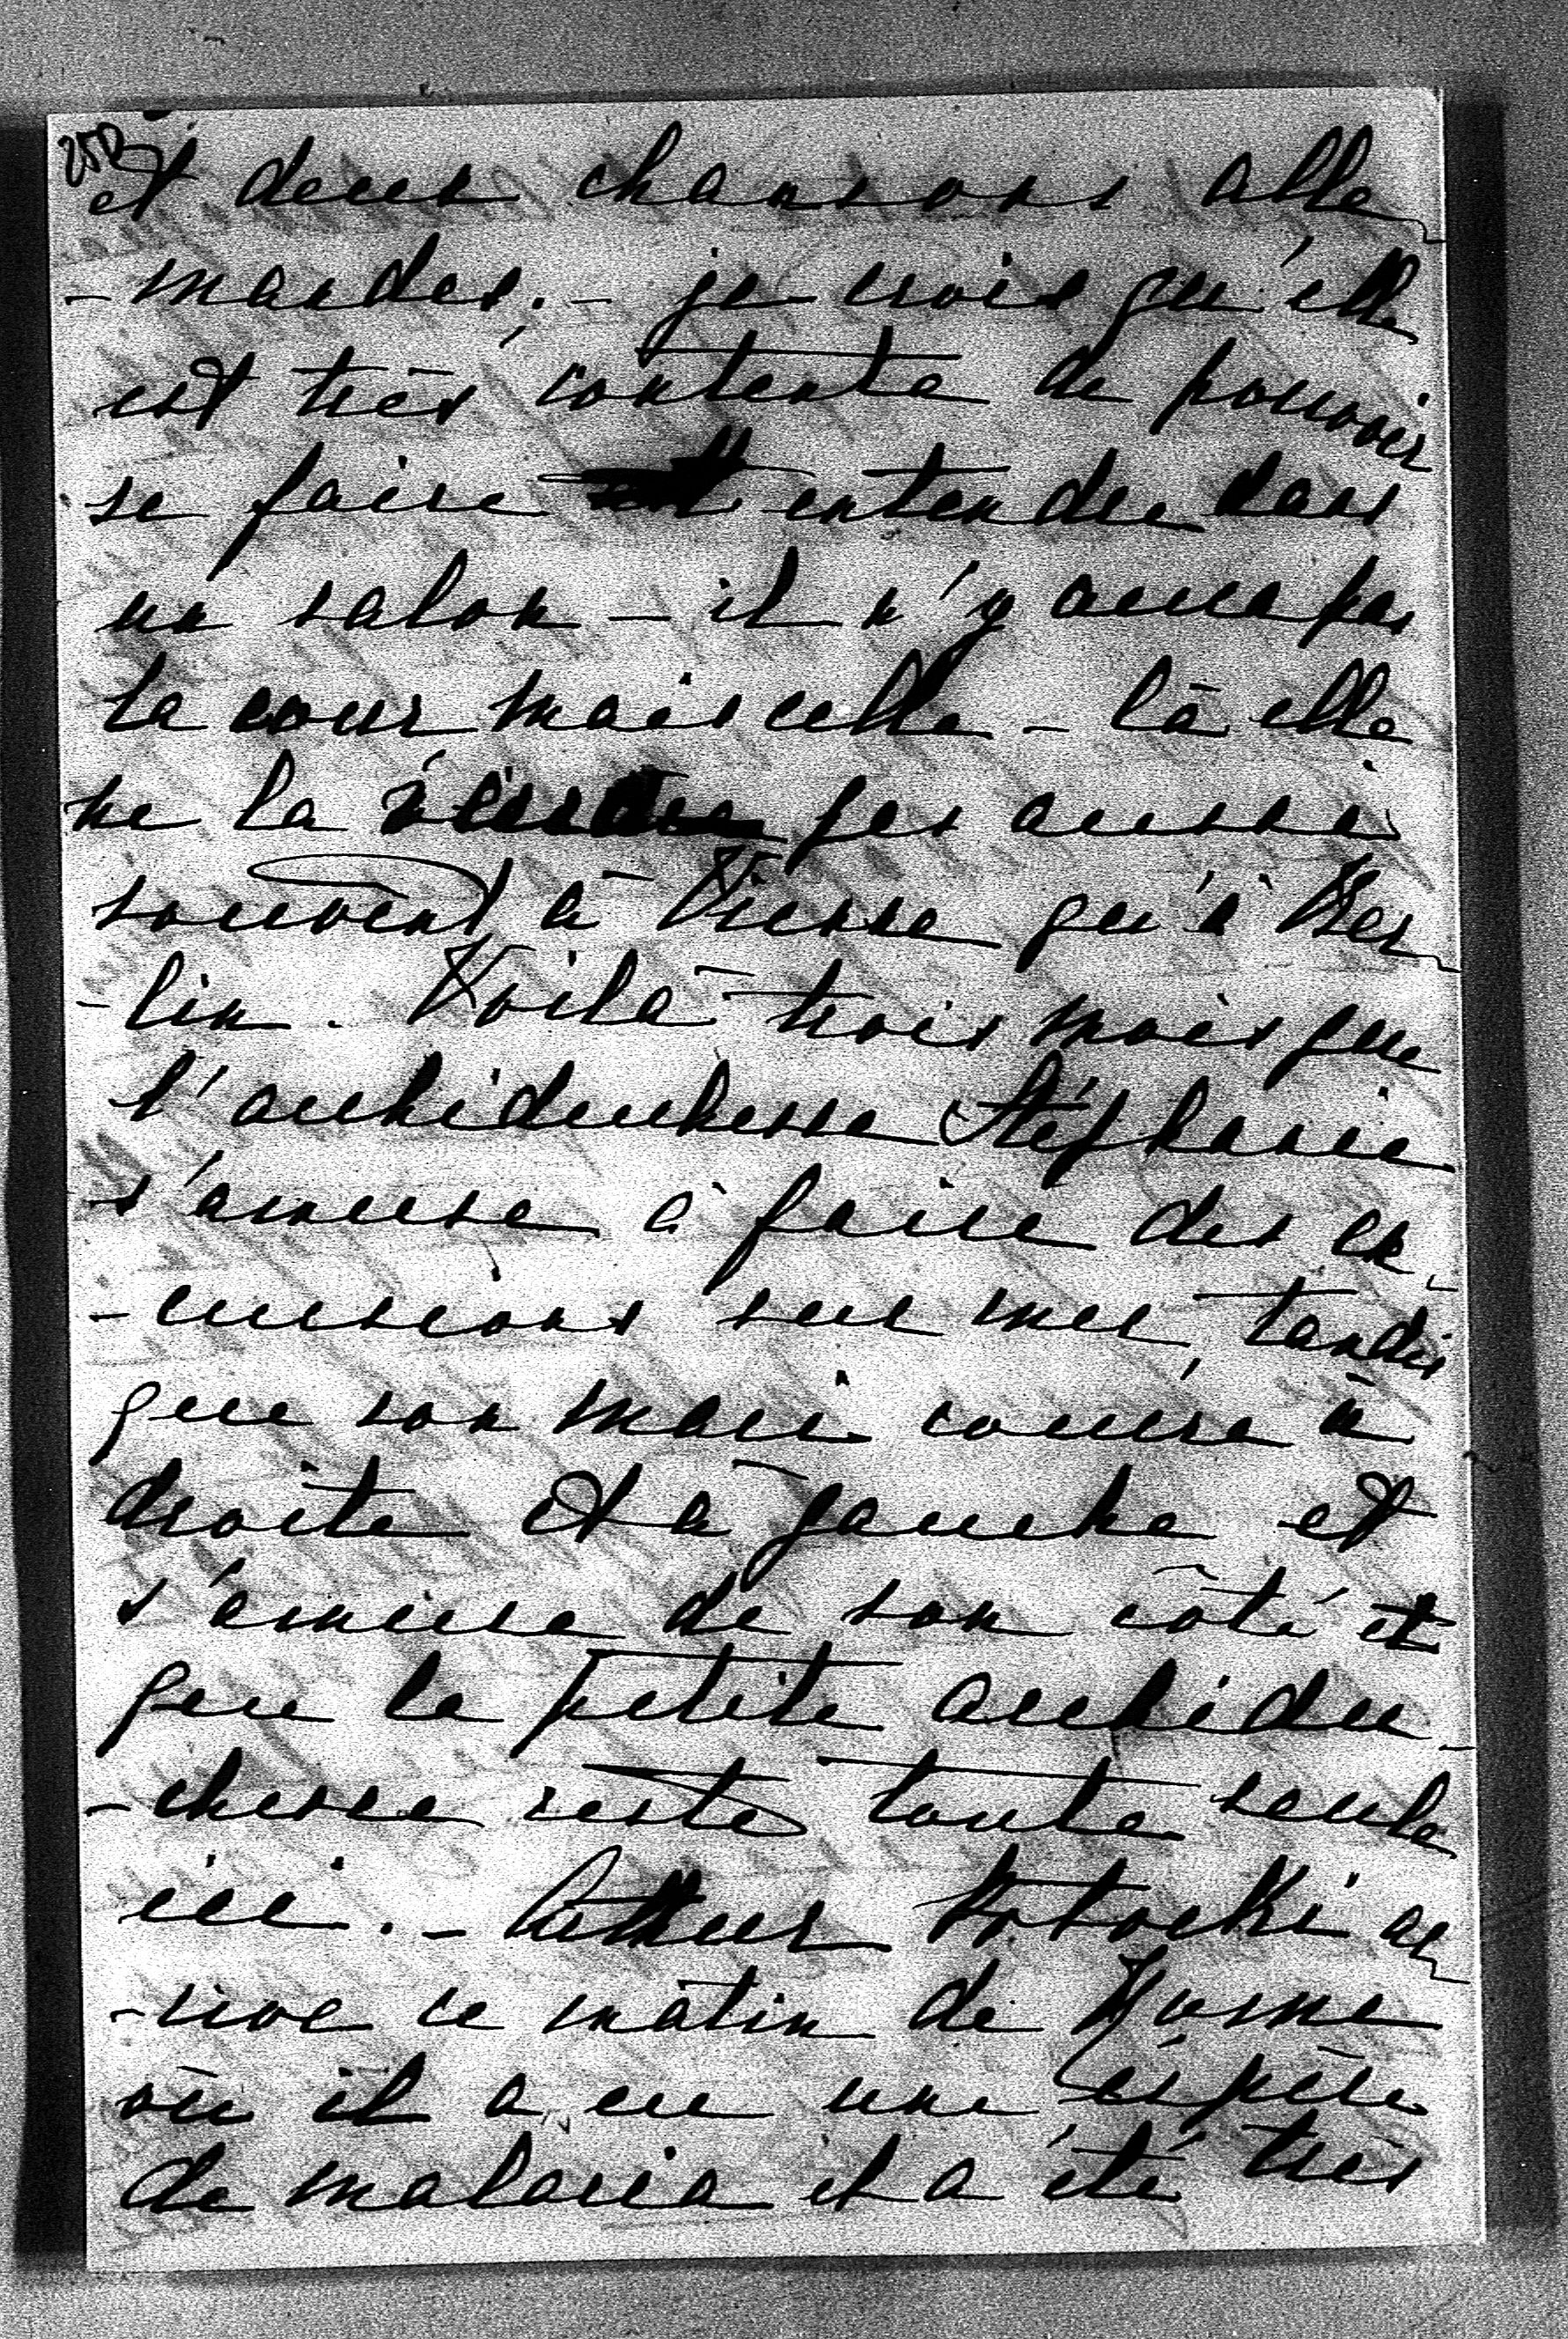 25B
et deux chansons alle
-mandes. - je crois qu'elle
est très contente de pouvoir
se faire entendre dans
un salon - il n'y aura pas
la cour mais celle - là elle
ne la pas aussi
souvent à Vienne qu'à Ber
-lin. Voilà trois mois que
l'archiduchesse Stéphanie
s'amuse à faire des ex
-cursions sur mer, tandis
que son mari courre à
droite et à gauche et
s'amuse de son côté et
que la petite archidu
-chesse reste toute seule
ici. - Arthur Potocki ar
-rive ce matin de Rome
où il a eu une espèce
de malaria et a été très